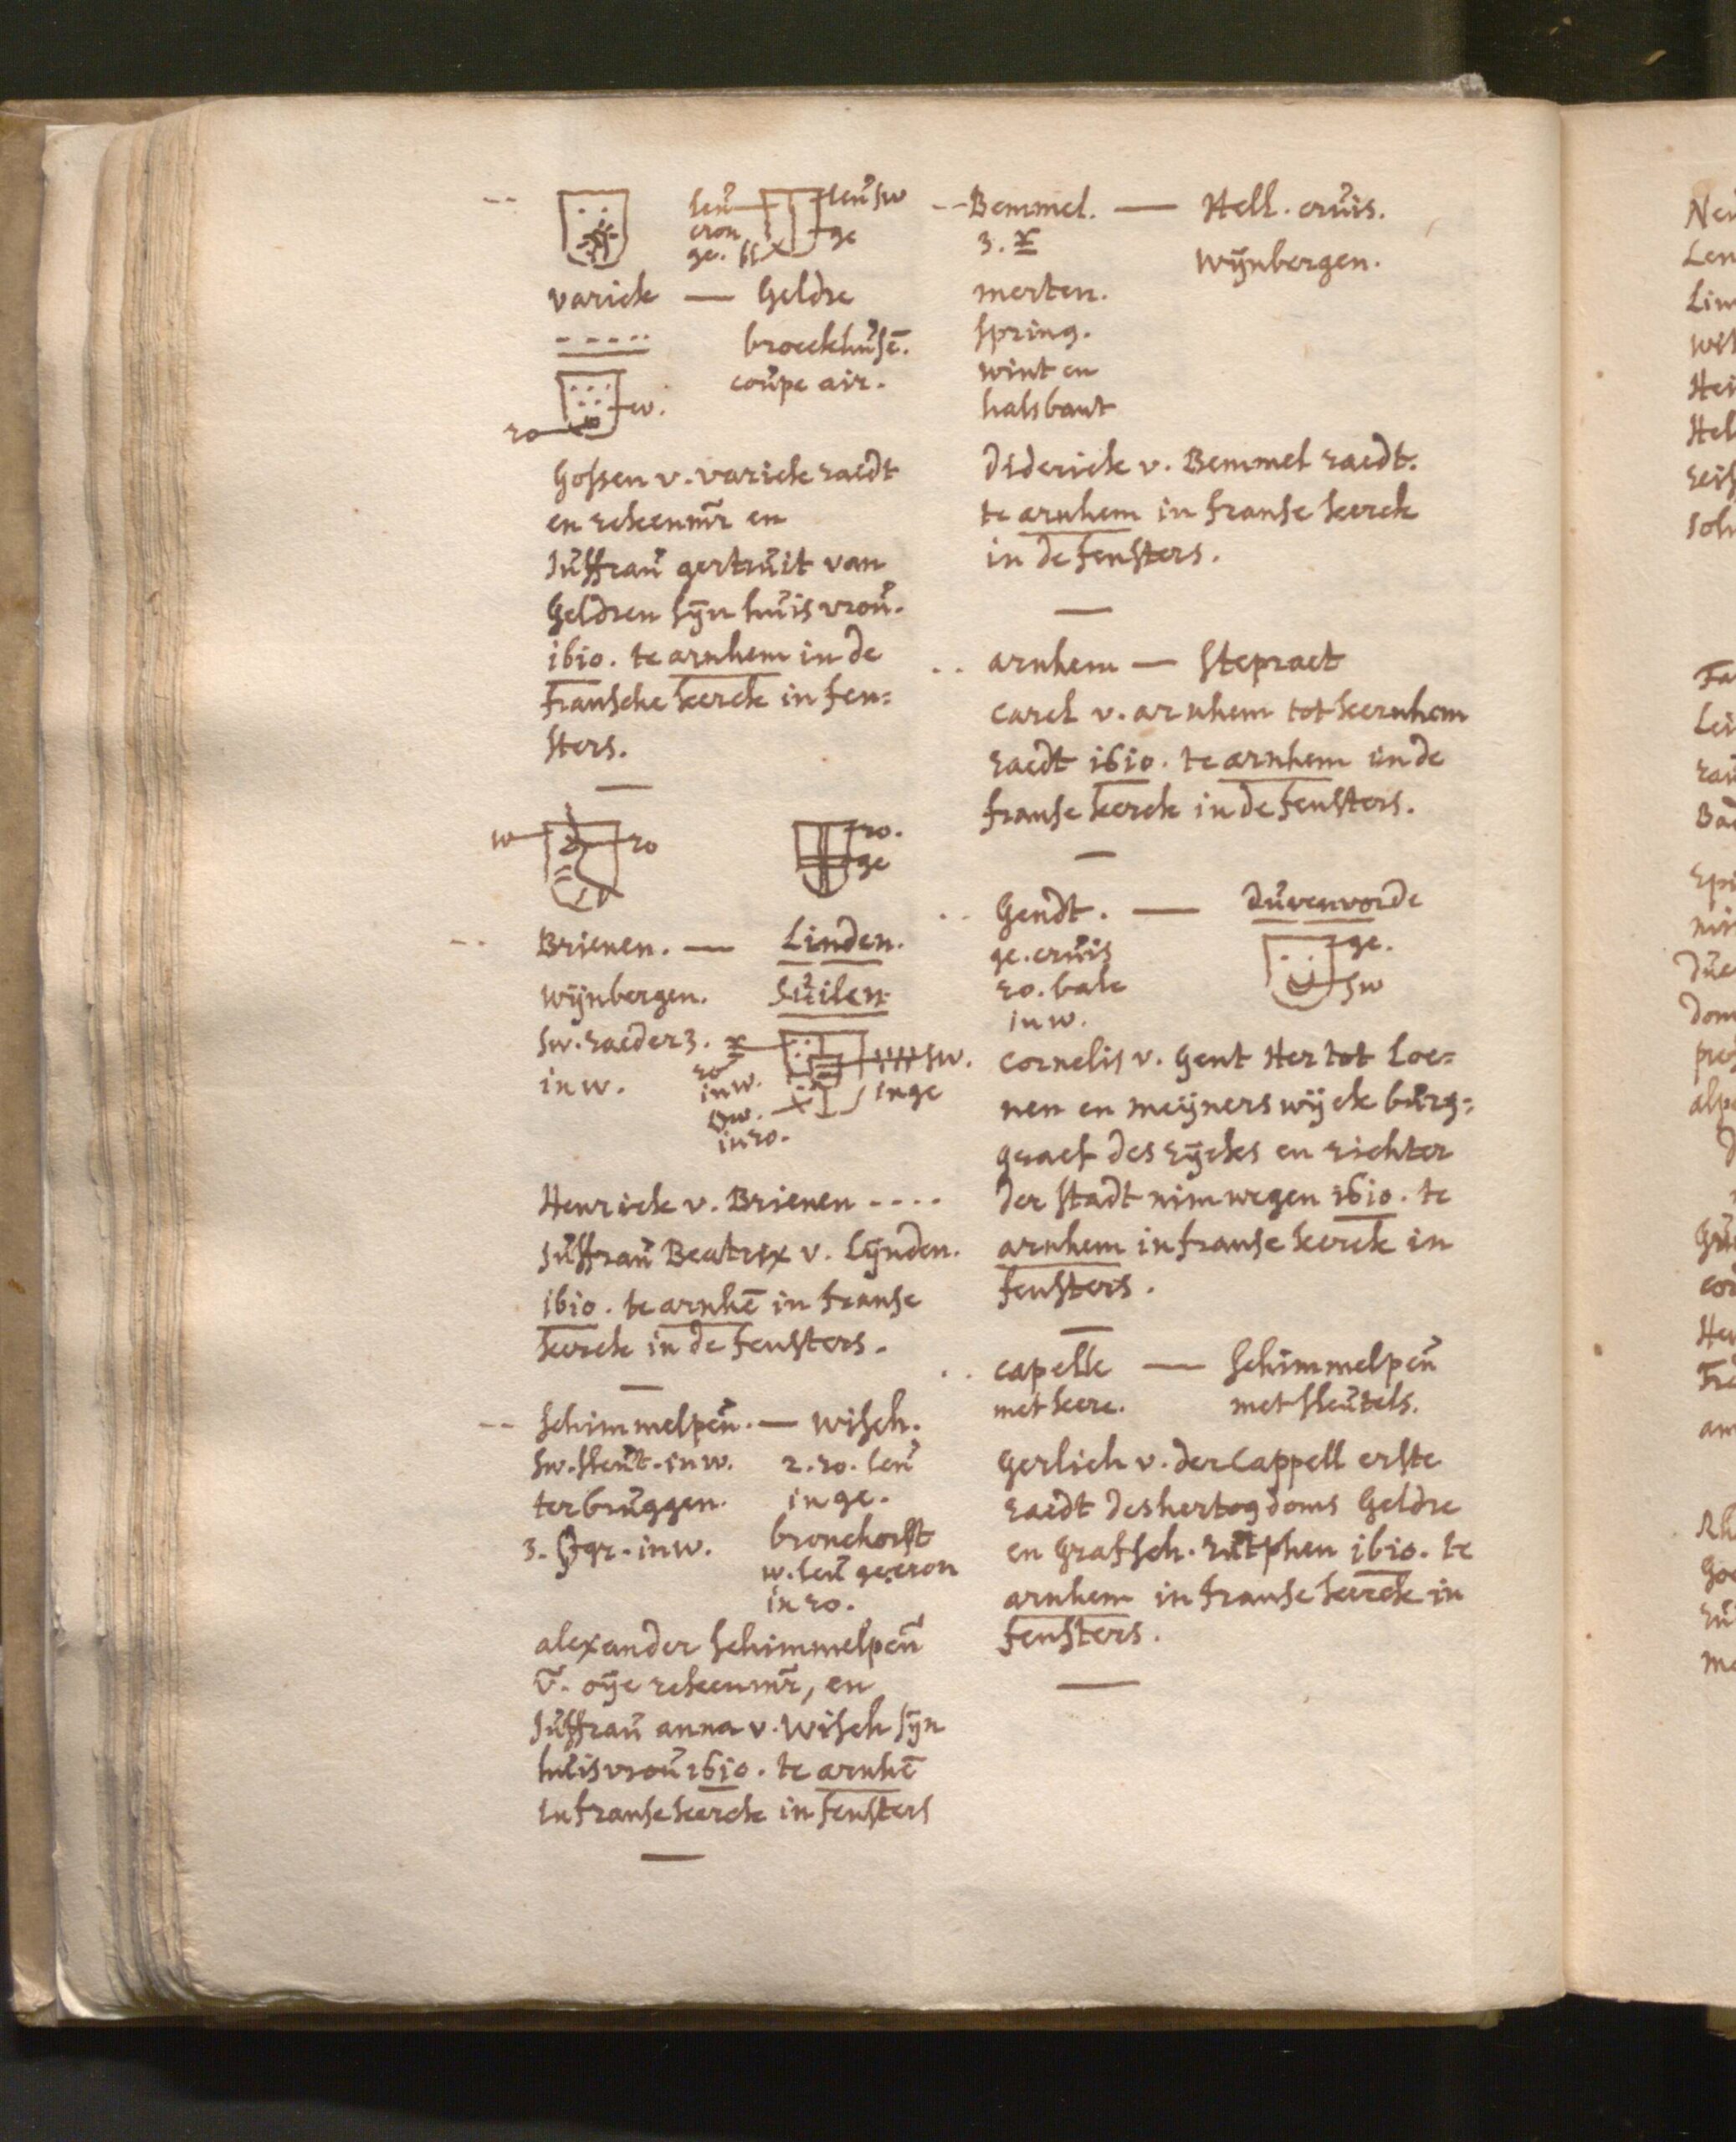 leu leu sw
cron ge
ge. bl
varick — Geldre
broeckhusē.
coupe air.
w.
ro
Gossen v. varick raedt
en rekenmr en
Juffrau gertruit van
Geldren sijn huisvrou.
1610. te arnhem in de
fransche kerck in fen=
sters.
w ro ro.
ge
Brienen. — Linden.
wijnbergen. Suilen
sw. raeder 3.
in w.
ro
in w.
sw.
in ge
in ro.
Henrick v. Brienen ....
Juffrau Beatrix v. Lijnden.
1610. te arnhē in franse
kerck in de fensters.
Schimmelpen̄. — wisch.
sw. sleut. in w. 2. ro. leu
terbruggen. in ge.
3. gr. in w. bronchorst
w. leu ge. cron
in ro.
alexander Schimmelpen̄
v. oije rekenmr, en
Juffrau anna v. Wisch sijn
huisvrou 1610. te arnhē
in franse kerck in fensters
Bemmel. — Hell. cruis.
3. wijnbergen.
merten.
spring.
wint en
halsbant
Diderick v. Bemmel raedt.
te arnhem in franse kerck
in de fensters.
arnhem — Stepraet
Carel v. arnhem tot kernhem
raedt 1610. te arnhem in de
franse kerck in de fensters.
Gendt. — Duvenvorde
ge. cruis ge.
ro. balc sw
in w.
Cornelis v. Gent Her tot Loe=
nen en meijnerswijck burg=
graef des rijckes en richter
der stadt nimwegen 1610. te
arnhem in franse kerck in
fensters.
capelle — Schimmelpen̄
met kerc. met sleutels.
Gerlich v. der Cappell erste
raedt des hertogdoms Geldre
en Grafsch. Zutphen 1610. te
arnhem in franse kerck in
fensters.